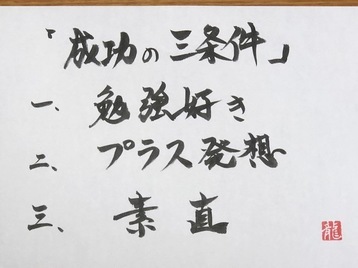 「成功の三条件」
一、勉強好き
二、プラス発想
三、素直
龍